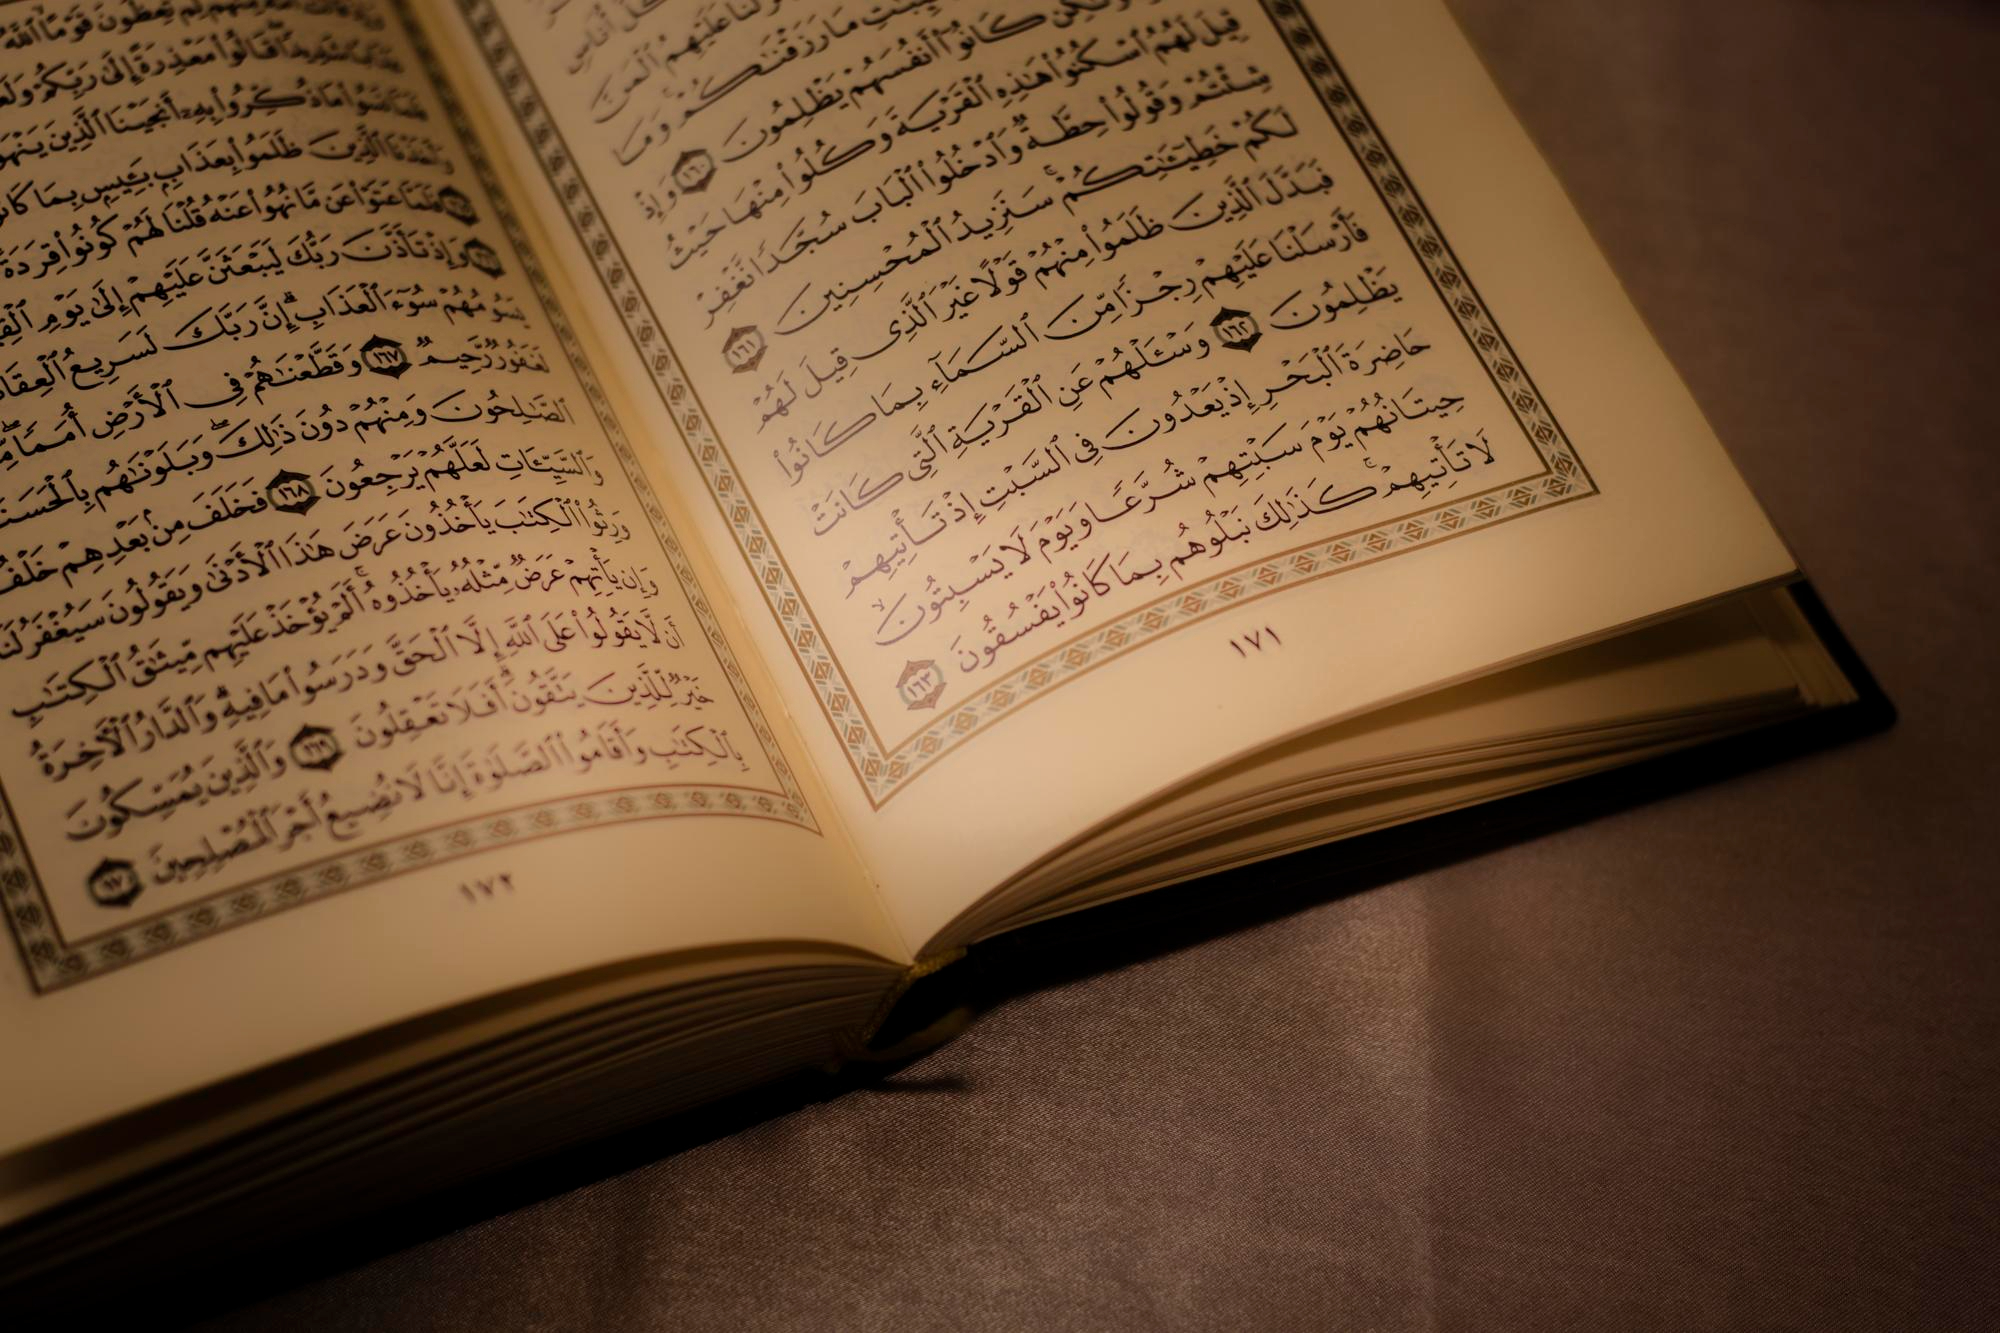 كُلُّ أُنَاسٍ
عَلَيْهِمُ ٱلْمَنَّ
مَا رَزَقْنَـٰكُمْ وَمَا
وَلَـٰكِن كَانُوٓا۟ أَنفُسَهُمْ يَظْلِمُونَ ١٦٠ وَإِذْ
قِيلَ لَهُمُ ٱسْكُنُوا۟ هَـٰذِهِ ٱلْقَرْيَةَ وَكُلُوا۟ مِنْهَا حَيْثُ
شِئْتُمْ وَقُولُوا۟ حِطَّةٌ وَٱدْخُلُوا۟ ٱلْبَابَ سُجَّدًا نَّغْفِرْ
لَكُمْ خَطِيٓـَٔـٰتِكُمْ ۚ سَنَزِيدُ ٱلْمُحْسِنِينَ ١٦١
فَبَدَّلَ ٱلَّذِينَ ظَلَمُوا۟ مِنْهُمْ قَوْلًا غَيْرَ ٱلَّذِى قِيلَ لَهُمْ
فَأَرْسَلْنَا عَلَيْهِمْ رِجْزًا مِّنَ ٱلسَّمَآءِ بِمَا كَانُوا۟
يَظْلِمُونَ ١٦٢ وَسْـَٔلْهُمْ عَنِ ٱلْقَرْيَةِ ٱلَّتِى كَانَتْ
حَاضِرَةَ ٱلْبَحْرِ إِذْ يَعْدُونَ فِى ٱلسَّبْتِ إِذْ تَأْتِيهِمْ
حِيتَانُهُمْ يَوْمَ سَبْتِهِمْ شُرَّعًا وَيَوْمَ لَا يَسْبِتُونَ ۙ
لَا تَأْتِيهِمْ ۚ كَذَٰلِكَ نَبْلُوهُم بِمَا كَانُوا۟ يَفْسُقُونَ ١٦٣
١٧١
مِّنْهُمْ لِمَ تَعِظُونَ قَوْمًا ٱللَّهُ
عَذَابًا شَدِيدًا قَالُوا۟ مَعْذِرَةً إِلَىٰ رَبِّكُمْ
فَلَمَّا نَسُوا۟ مَا ذُكِّرُوا۟ بِهِۦٓ أَنجَيْنَا ٱلَّذِينَ
وَأَخَذْنَا ٱلَّذِينَ ظَلَمُوا۟ بِعَذَابٍ بَـِٔيسٍ بِمَا
فَلَمَّا عَتَوْا۟ عَن مَّا نُهُوا۟ عَنْهُ قُلْنَا لَهُمْ كُونُوا۟ قِرَدَةً
وَإِذْ تَأَذَّنَ رَبُّكَ لَيَبْعَثَنَّ عَلَيْهِمْ إِلَىٰ يَوْمِ
يَسُومُهُمْ سُوٓءَ ٱلْعَذَابِ ۗ إِنَّ رَبَّكَ لَسَرِيعُ
لَغَفُورٌ رَّحِيمٌ ١٦٧ وَقَطَّعْنَـٰهُمْ فِى ٱلْأَرْضِ أُمَمًا ۖ
ٱلصَّـٰلِحُونَ وَمِنْهُمْ دُونَ ذَٰلِكَ ۖ وَبَلَوْنَـٰهُم
وَٱلسَّيِّـَٔاتِ لَعَلَّهُمْ يَرْجِعُونَ ١٦٨ فَخَلَفَ مِنۢ بَعْدِهِمْ
وَرِثُوا۟ ٱلْكِتَـٰبَ يَأْخُذُونَ عَرَضَ هَـٰذَا ٱلْأَدْنَىٰ وَيَقُولُونَ سَيُغْفَرُ لَنَا
وَإِن يَأْتِهِمْ عَرَضٌ مِّثْلُهُۥ يَأْخُذُوهُ ۚ أَلَمْ يُؤْخَذْ عَلَيْهِم مِّيثَـٰقُ ٱلْكِتَـٰبِ
أَن لَّا يَقُولُوا۟ عَلَى ٱللَّهِ إِلَّا ٱلْحَقَّ وَدَرَسُوا۟ مَا فِيهِ ۗ وَٱلدَّارُ ٱلْـَٔاخِرَةُ
خَيْرٌ لِّلَّذِينَ يَتَّقُونَ ۗ أَفَلَا تَعْقِلُونَ ١٦٩ وَٱلَّذِينَ يُمَسِّكُونَ
بِٱلْكِتَـٰبِ وَأَقَامُوا۟ ٱلصَّلَوٰةَ إِنَّا لَا نُضِيعُ أَجْرَ ٱلْمُصْلِحِينَ ١٧٠
١٧٢